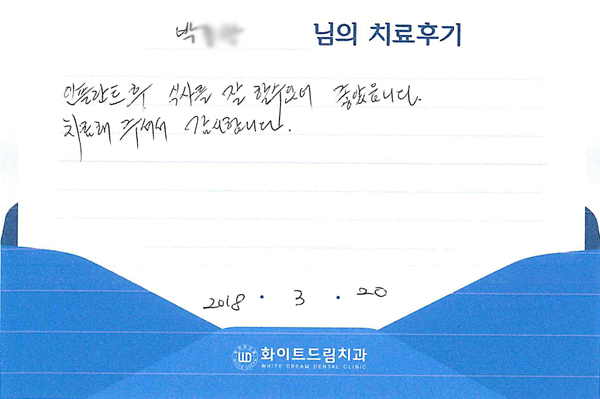 박 님의 치료후기
인플란트 후 식사를 잘 할수있어 좋았읍니다.
치료해 주셔서 감사합니다.
2018 . 3 . 20
WD 화이트드림치과
WHITE DREAM DENTAL CLINIC